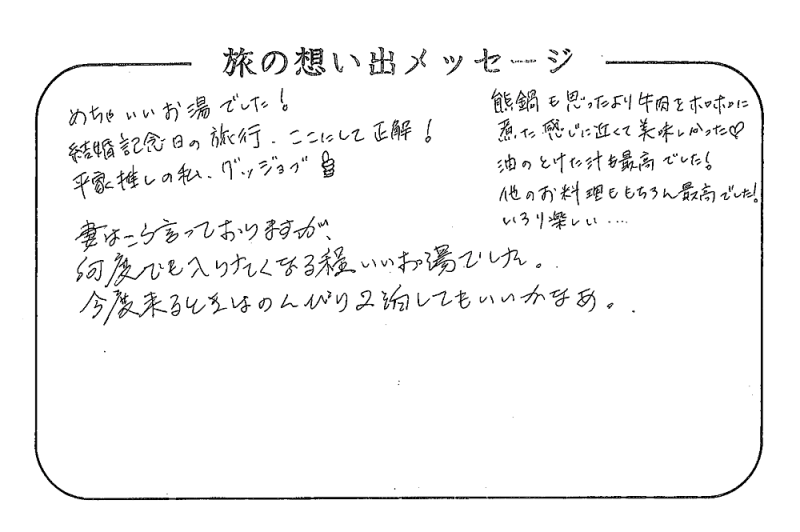 旅の想い出メッセージ
めちゃいいお湯でした！
結婚記念日の旅行、ここにして正解！
平家推しの私、グッジョブ
熊鍋も思ったより牛肉をホロホロに
煮た感じに近くて美味しかった♡
油のとけた汁も最高でした！
他のお料理ももちろん最高でした！
いろり楽しい…
妻はこう言っておりますが、
何度でも入りたくなる程いいお湯でした。
今度来るときはのんびり2泊してもいいかなあ。